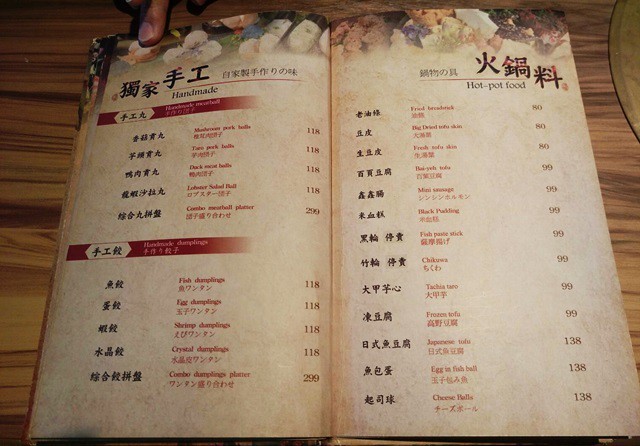 獨家手工 自家製手作りの味
Handmade
手工丸 Handmade meatball
手作り団子
香菇貢丸 Mushroom pork balls 118
芋頭貢丸 Taro pork balls 118
芋肉団子
鴨肉貢丸 Duck meat balls 118
鴨肉団子
龍蝦沙拉丸 Lobster Salad Ball 118
ロブスター団子
綜合丸拼盤 Combo meatball platter 299
団子盛り合わせ
手工餃 Handmade dumplings
手作り餃子
魚餃 Fish dumplings 118
魚ワンタン
蛋餃 Egg dumplings 118
玉子ワンタン
蝦餃 Shrimp dumplings 118
えびワンタン
水晶餃 Crystal dumplings 118
水晶皮ワンタン
綜合餃拼盤 Combo dumplings platter 299
ワンタン盛り合わせ
鍋物の具 火鍋料
Hot-pot food
老油條 Fried breadstick 80
油條
豆皮 Big Dried tofu skin 80
大湯葉
生豆皮 Fresh tofu skin 99
生湯葉
百頁豆腐 Bai-yeh tofu 99
百葉豆腐
鑫鑫腸 Mini sausage 99
シンシンホルモン
米血糕 Black Pudding 99
米血糕
黑輪 停賣 Fish paste stick 99
薩摩揚げ
竹輪 停賣 Chikuwa 99
ちくわ
大甲芋心 Tachia taro 99
大甲芋
凍豆腐 Frozen tofu 99
高野豆腐
日式魚豆腐 Japanese tofu 138
日式魚豆腐
魚包蛋 Egg in fish ball 138
玉子包み魚
起司球 Cheese Balls 138
チーズボール